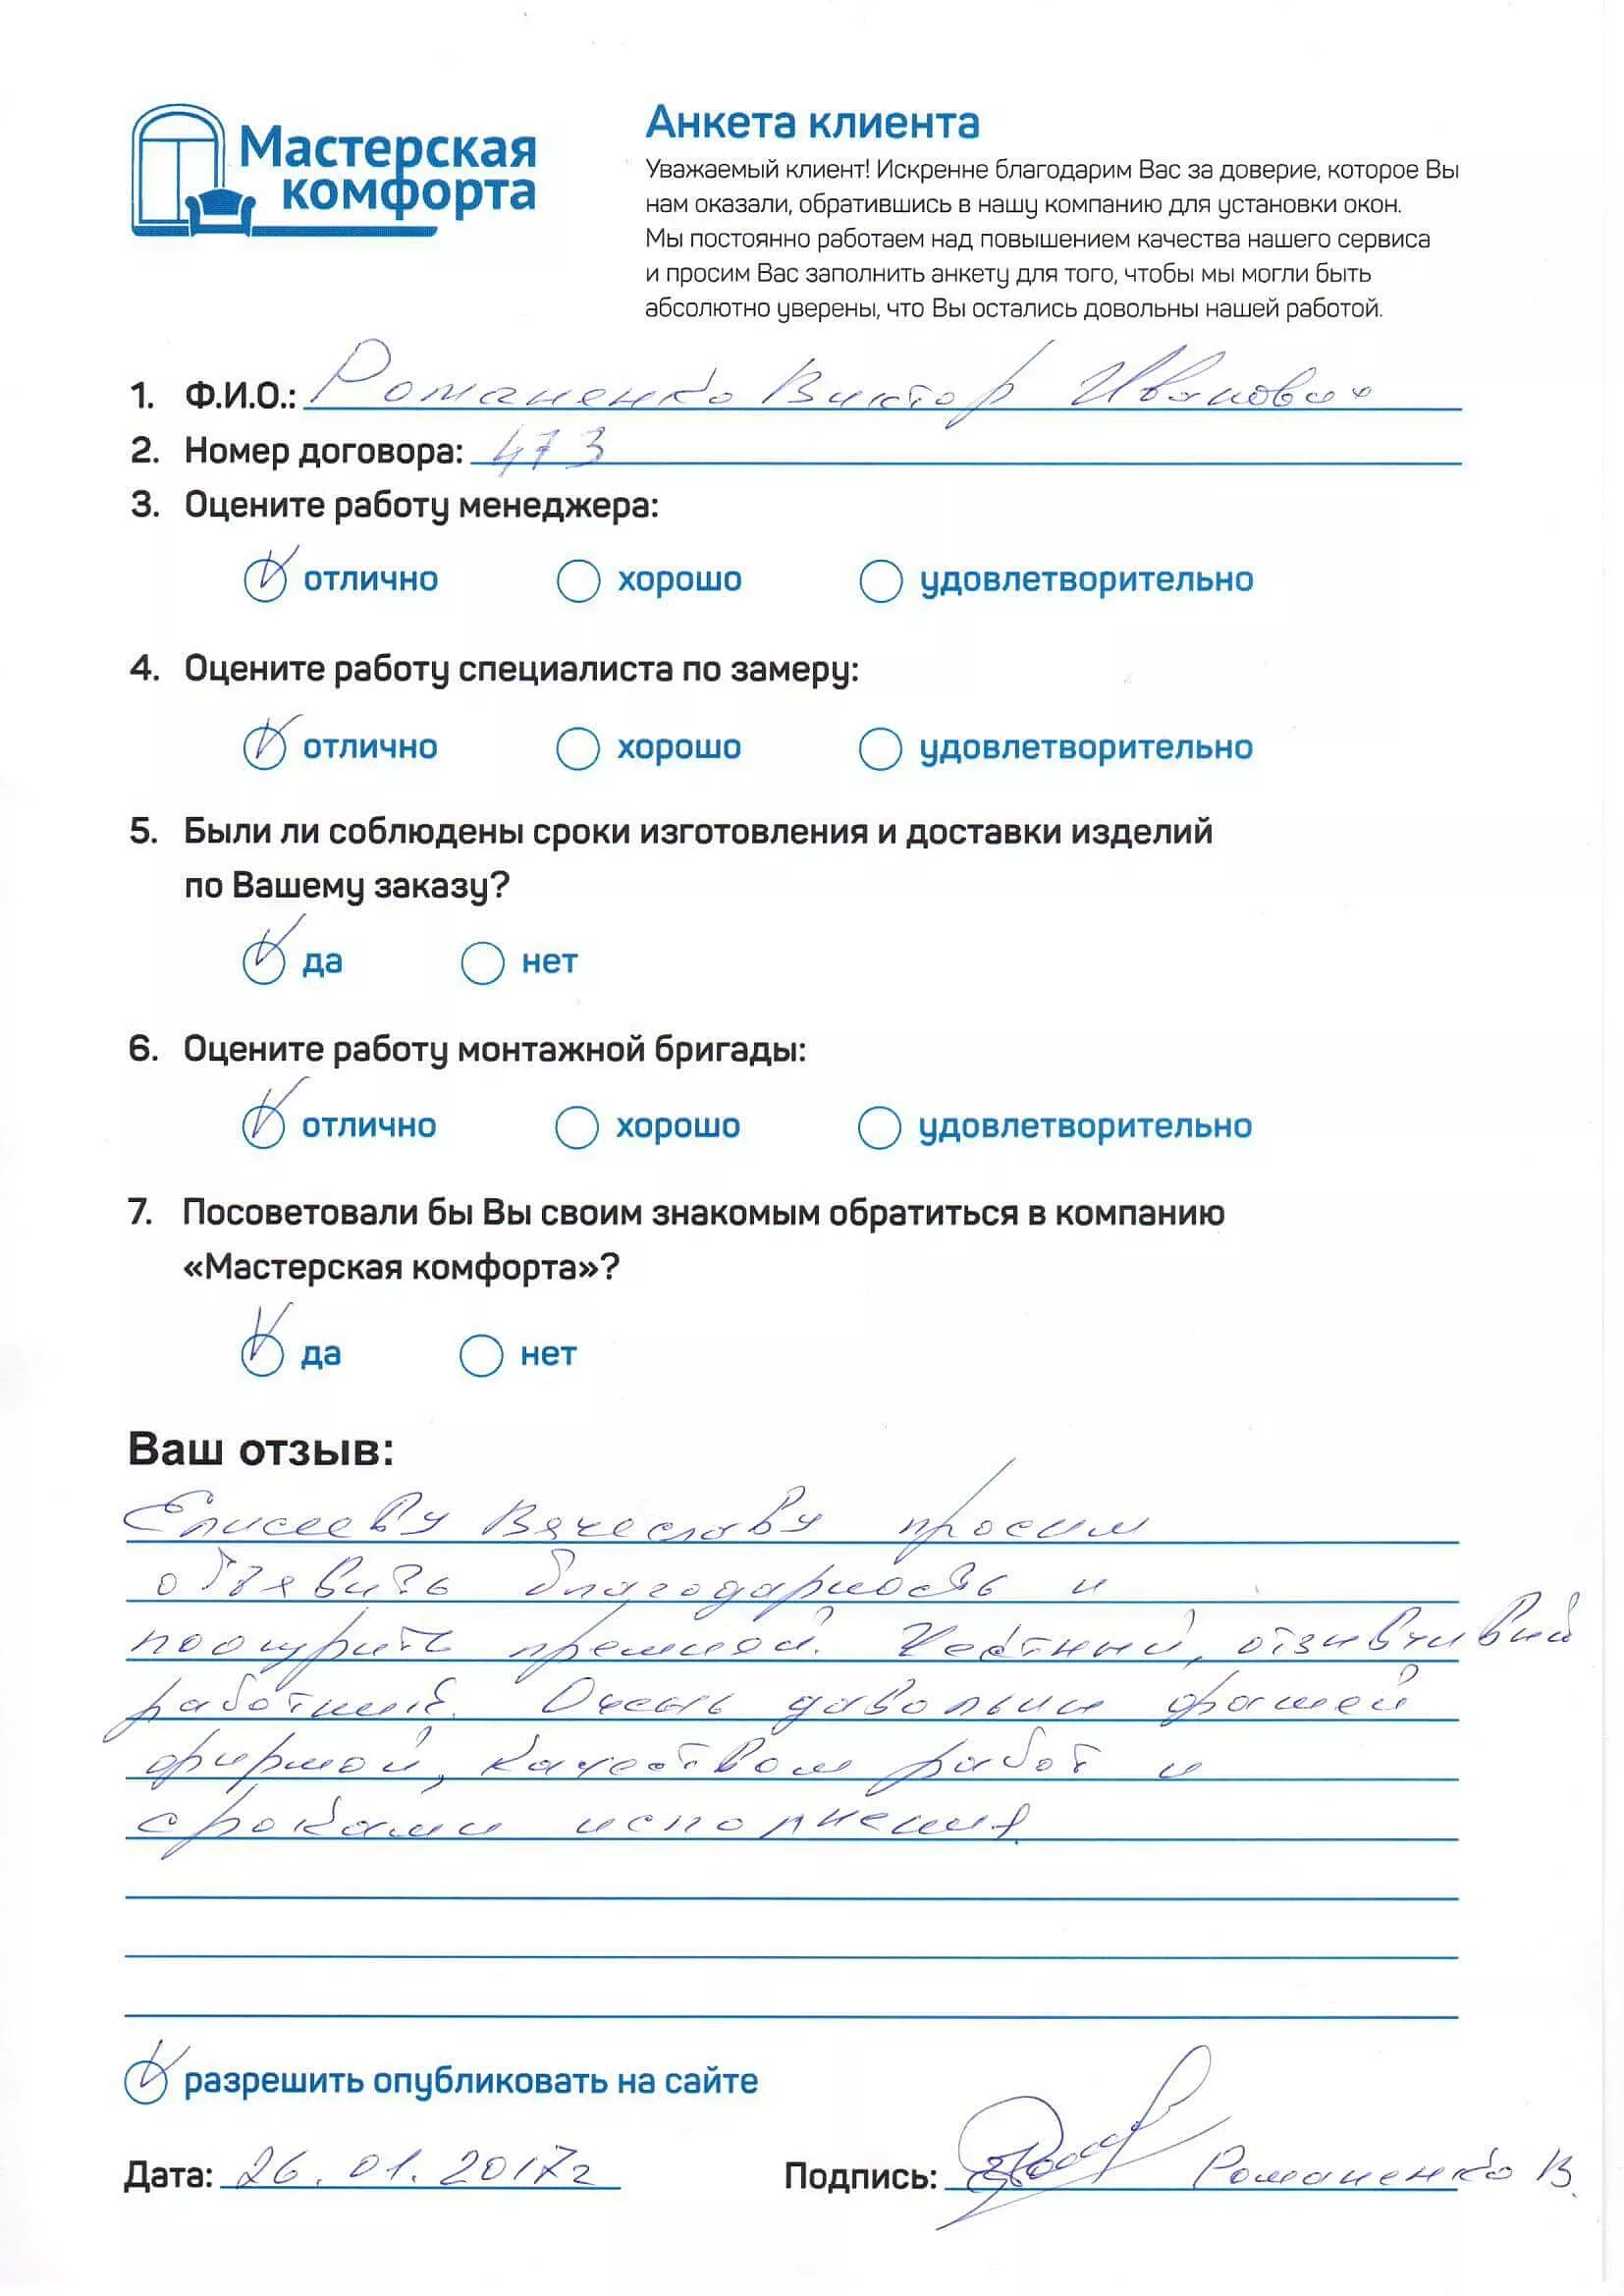 Мастерская
комфорта
Анкета клиента
Уважаемый клиент! Искренне благодарим Вас за доверие, которое Вы
нам оказали, обратившись в нашу компанию для установки окон.
Мы постоянно работаем над повышением качества нашего сервиса
и просим Вас заполнить анкету для того, чтобы мы могли быть
абсолютно уверены, что Вы остались довольны нашей работой.
1. Ф.И.О.: Романенко Виктор Иванович
2. Номер договора: 473
3. Оцените работу менеджера:
отлично хорошо удовлетворительно
4. Оцените работу специалиста по замеру:
отлично хорошо удовлетворительно
5. Были ли соблюдены сроки изготовления и доставки изделий
по Вашему заказу?
да нет
6. Оцените работу монтажной бригады:
отлично хорошо удовлетворительно
7. Посоветовали бы Вы своим знакомым обратиться в компанию
«Мастерская комфорта»?
да нет
Ваш отзыв:
Елисееву Вячеславу просим
объявить благодарность и
поощрить премией. Честный, отзывчивый
работник. Очень довольны
фирмой, качеством работ и
сроками исполнения.
разрешить опубликовать на сайте
Дата: 26.01.2017г Подпись: Романенко В.